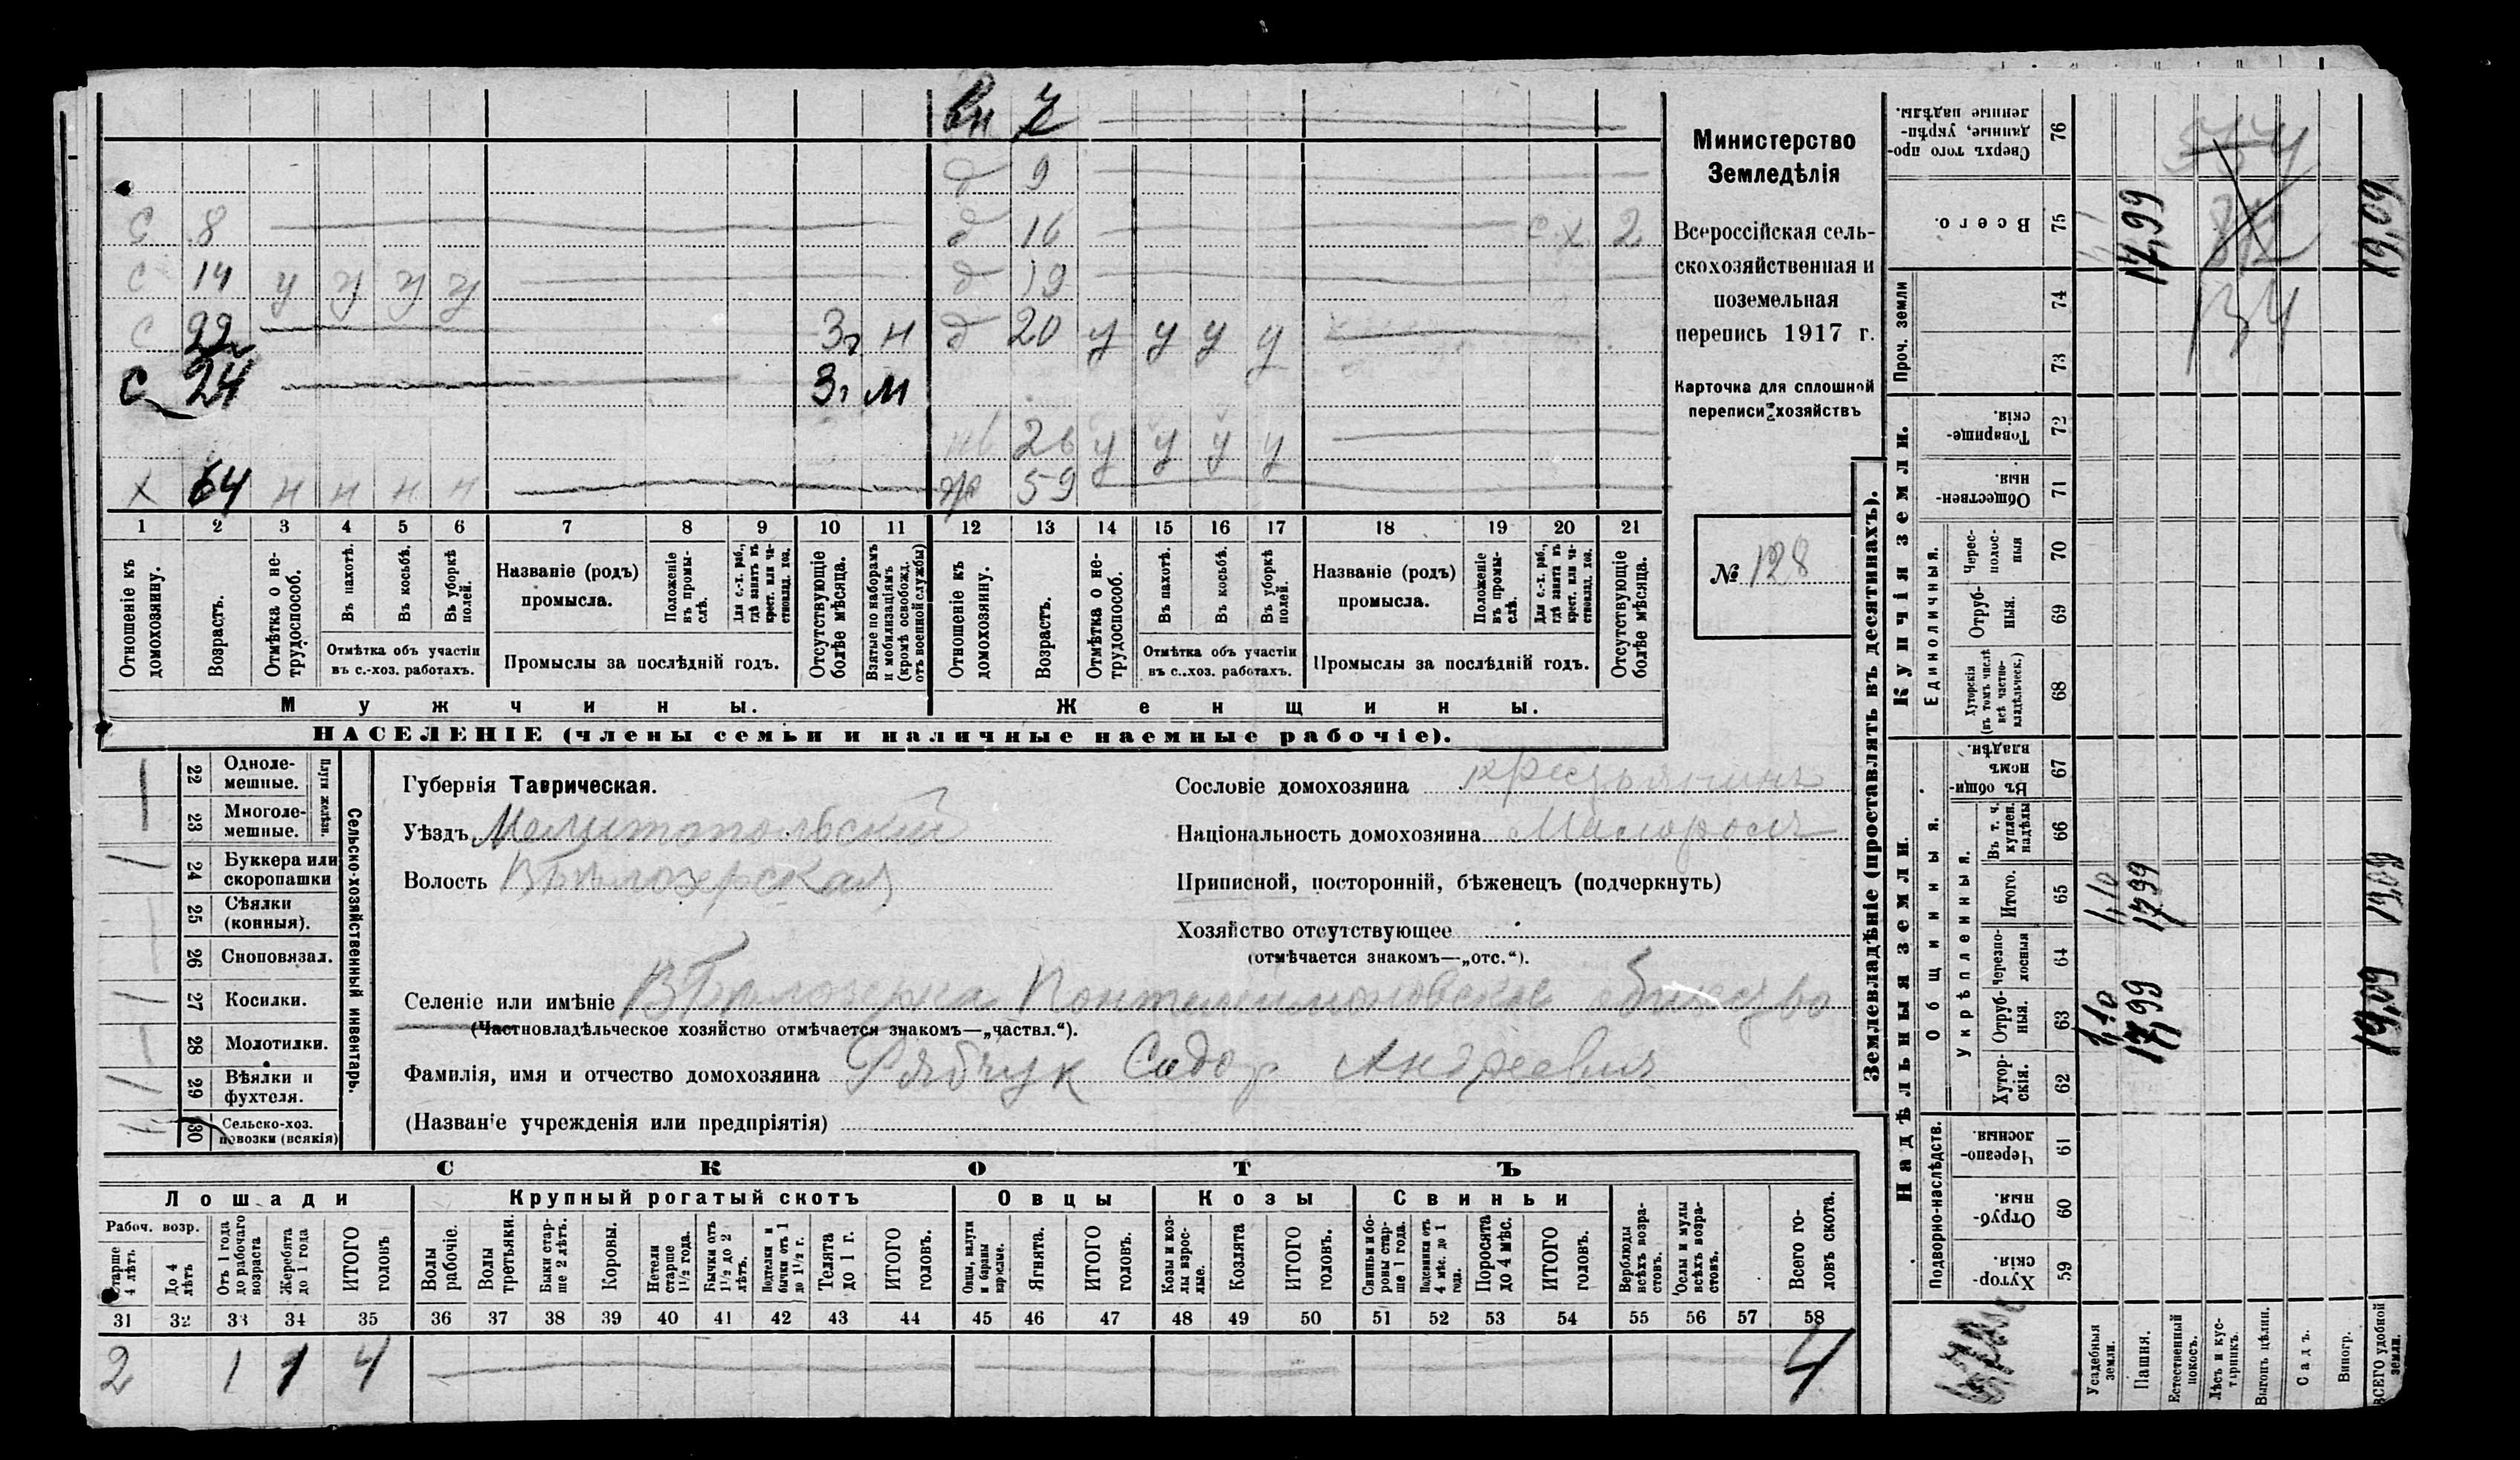 вн 7
д 9
с 8 д 16 с х 2
с 14 у у у у д 19
с 22 3г н д 20 у у у у
с 24 3г м
нв 26 у у у у
х 64 н н н н ж 59
1 2 3 4 5 6 7 8 9 10 11 12 13 14 15 16 17 18 19 20 21
Отношеніе къ домохозяину.
Возрастъ.
Отмѣтка о не-трудоспособ.
Въ пахотѣ.
Въ косьбѣ.
Въ уборкѣ полей.
Отмѣтка объ участіи
въ с.-хоз. работахъ.
Названіе (родъ)
промысла.
Положеніе въ промы-слѣ.
Для с.-х. раб., гдѣ занятъ въ крест. или ча-стновлад. хоз.
Промыслы за послѣдній годъ.
Отсутствующіе болѣе мѣсяца.
Взятые по наборамъ и мобилизаціямъ (кромѣ освобожд. отъ военной службы)
Отношеніе къ домохозяину.
Возрастъ.
Отмѣтка о не-трудоспособ.
Въ пахотѣ.
Въ косьбѣ.
Въ уборкѣ полей.
Отмѣтка объ участіи
въ с.-хоз. работахъ.
Названіе (родъ)
промысла.
Положеніе въ промы-слѣ.
Для с.-х. раб., гдѣ занята въ крест. или ча-стновлад. хоз.
Промыслы за послѣдній годъ.
Отсутствующіе болѣе мѣсяца.
Мужчины. Женщины.
НАСЕЛЕНІЕ (члены семьи и наличные наемные рабочіе).
Министерство
Земледѣлія
Всероссійская сель-
скохозяйственная и
поземельная
перепись 1917 г.
Карточка для сплошной
переписи хозяйствъ
№ 128
Сельско-хозяйственный инвентарь.
Плуги желѣзн.
22 Одноле-
мешные.
23 Многоле-
мешные.
24 Буккера или
скоропашки
25 Сѣялки
(конныя).
26 Сноповязал.
27 Косилки.
28 Молотилки.
29 Вѣялки и
фухтеля.
30 Сельско-хоз.
повозки (всякія)
Губернія Таврическая.
Уѣздъ Мелитопольскій
Волость В Бѣлозерская
Селеніе или имѣніе В Бѣлозерка Понтелеимоновское общество
(Частновладѣльческое хозяйство отмѣчается знакомъ—„частвл.“).
Фамилія, имя и отчество домохозяина Рябчук Сидор Андреевич
(Названіе учрежденія или предпріятія)
Сословіе домохозяина крестьянинъ
Національность домохозяина Малоросъ
Приписной, посторонній, бѣженецъ (подчеркнуть)
Хозяйство отсутствующее
(отмѣчается знакомъ—„отс.“).
СКОТЪ
Лошади Крупный рогатый скотъ Овцы Козы Свиньи
Рабоч. возр.
Старше 4 лѣтъ
До 4 лѣтъ
Отъ 1 года до рабочаго возраста
Жеребята до 1 года
ИТОГО головъ
Волы рабочіе.
Волы третьяки.
Быки стар-ше 2 лѣтъ.
Коровы.
Нетели старше 1½ года.
Бычки отъ 1½ до 2 лѣтъ.
Подтелки и бычки отъ 1 до 1½ г.
Телята до 1 г.
ИТОГО головъ.
Овцы, валухи и бараны взрослые.
Ягнята.
ИТОГО головъ.
Козы и коз-лы взрос-лые.
Козлята
ИТОГО головъ.
Свиньи и бо-ровы стар-ше 1 года.
Подсвинки отъ 4 мѣс. до 1 года.
Поросята до 4 мѣс.
ИТОГО головъ.
Верблюды всѣхъ возра-стовъ.
Ослы и мулы всѣхъ возра-стовъ.
Всего го-ловъ скота.
31 32 33 34 35 36 37 38 39 40 41 42 43 44 45 46 47 48 49 50 51 52 53 54 55 56 57 58
2 1 1 4 4
Землевладѣніе (проставлять въ десятинахъ).
Надѣльныя земли.
Купчія земли.
Проч. земли
Подворно-наслѣдств.
Общинныя.
Укрѣпленныя.
Единоличныя.
Сверхъ того про-данные, укрѣп-ленные надѣлы. 76
Всего. 75
74
73
Товарище-скія. 72
Обществен-ныя. 71
Черес-полос-ныя 70
Отруб-ныя. 69
Хуторскія (въ томъ числѣ всѣ частно-владѣльческ.) 68
Въ общи-номъ владѣн. 67
Въ т. ч. куплен. надѣлы 66
Итого. 65
Черезпо-лосныя 64
Отруб-ныя. 63
Хутор-скія. 62
Черезпо-лосныя. 61
Отруб-ныя. 60
Хутор-скія. 59
Усадебныя земли.
Пашня.
Естественный покосъ.
Лѣсъ и кус-тарникъ.
Выгонъ цѣлин.
Садъ.
Виногр.
ВСЕГО удобной земли.
17,99 19,09
1,10 17,99 19,09
1,10 17,99 19,09
134